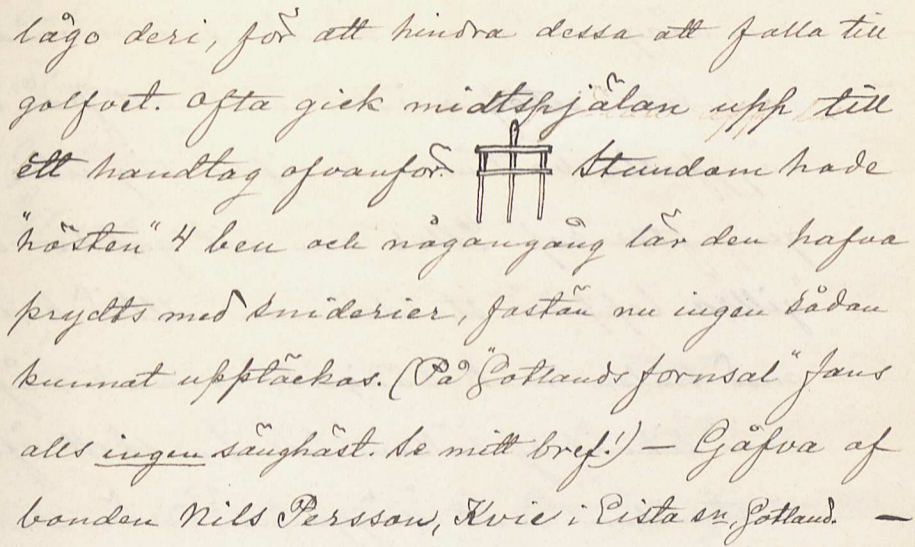 lågo deri, för att hindra dessa att falla till
golfvet. Ofta gick midtspjälan upp till
ett handtag ofvanför. Stundom hade
"hästen" 4 ben och någongång lär den hafva
prydts med sniderier, fastän nu ingen sådan
kunnat upptäckas. (På "Gotlands fornsal" fans
alls ingen sänghäst. Se mitt bref!) — Gåfva af
bonden Nils Persson, Kvie i Eista sn, Gotland. —